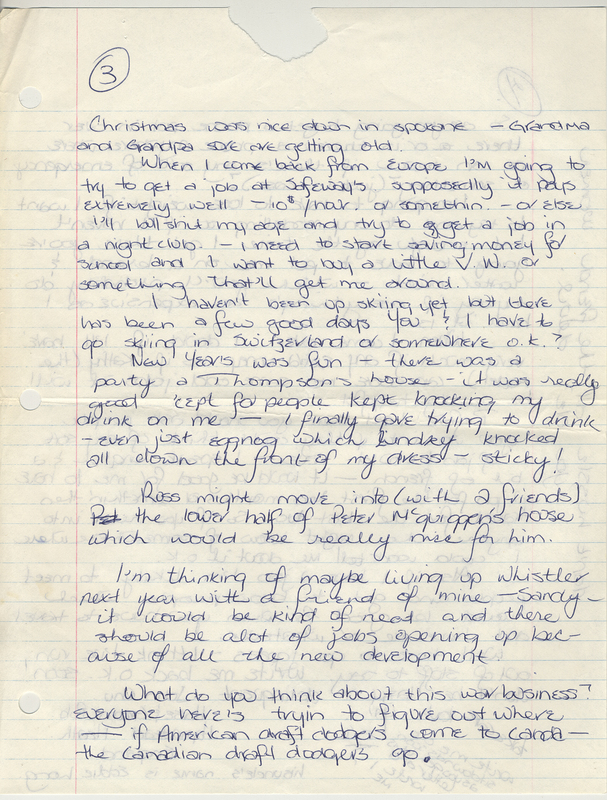 3
Christmas was nice down in spokane – Grandma
and Grandpa sure are getting old.
When I come back from Europe I'm going to
try to get a job at Safeway's supposedly it pays
extremely well – 10$/hour. or somethin. – or else
I'll bullshit my age and try to get a job in
a night club. – I need to start saving money for
school and want to buy a little V.W. or
something that'll get me around.
I haven't been up skiing yet but there
has been a few good days you? I have to
go skiing in Switzerland or somewhere o.k.?
New Years was fun – there was a
party a Thompson's house – it was really
good 'cept for people kept knocking my
drink on me – I finally gave trying to drink
– even just eggnog which Lindsey knocked
all down the front of my dress – sticky!
Ross might move into (with 2 friends)
the lower half of Peter McQuiggen's house
which would be really nice for him.
I'm thinking of maybe living up whistler
next year with a friend of mine – Sandy –
it would be kind of neat and there
should be alot of jobs opening up bec-
ause of all the new development
What do you think about this war business?
everyone here's tryin to figure out where
– if American draft dodgers come to Canda –
the Canadian draft dodgers go.